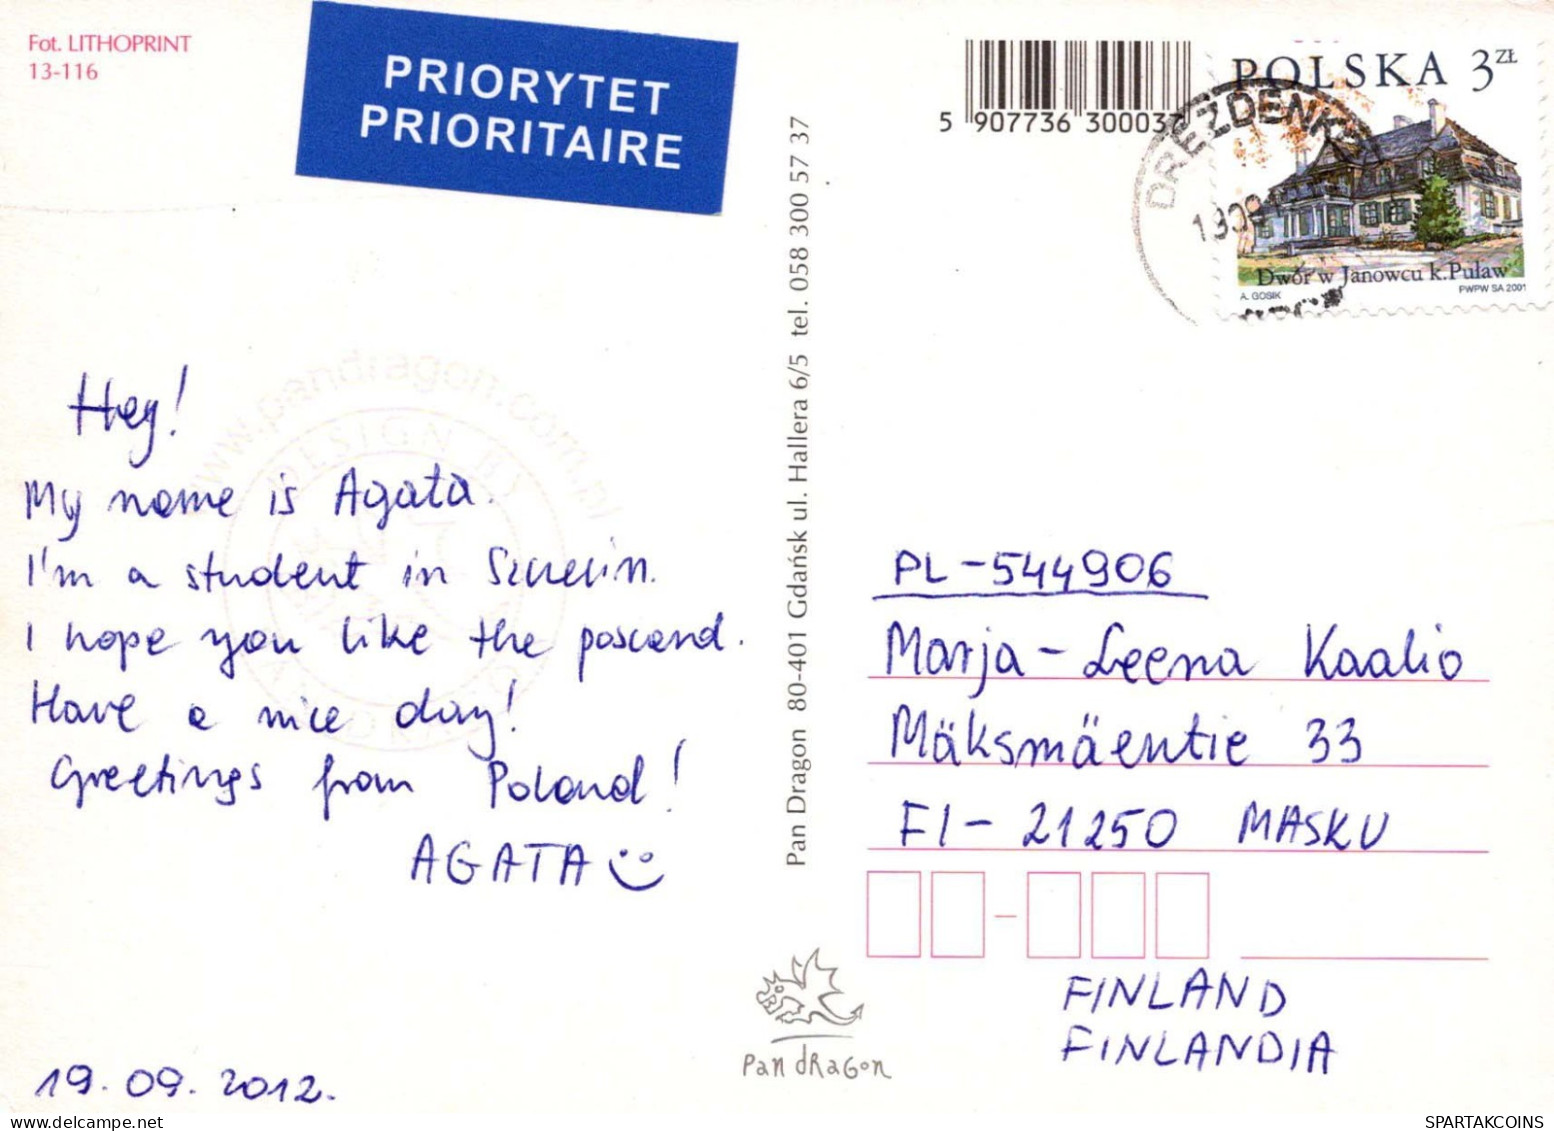 Fot. LITHOPRINT
13-116
PRIORYTET
PRIORITAIRE
5 907736 300037
POLSKA 3 ZŁ
DREZDENKO
Dwór w Janowcu k.Puław
A. GOSIK
PWPW SA 2001
www.pandragon.com.pl
DESIGN BY
PAN DRAGON
Hey!
My name is Agata.
I'm a student in Szczecin.
I hope you like the poscard.
Have a nice day!
Greetings from Poland!
AGATA
19.09.2012.
Pan Dragon 80-401 Gdańsk ul. Hallera 6/5 tel. 058 300 57 37
PL-544906
Marja-Leena Kaalio
Mäksmäentie 33
FI-21250 MASKU
FINLAND
FINLANDIA
Pan dRaGon
SPARTAKCOINS